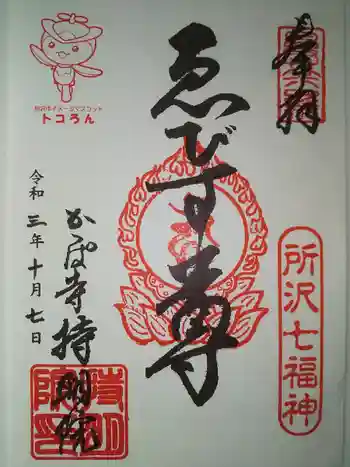 奉拝
所沢七福神
ゑびす尊
所沢市イメージマスコット
トコろん
令和三年十月七日
寺持明院